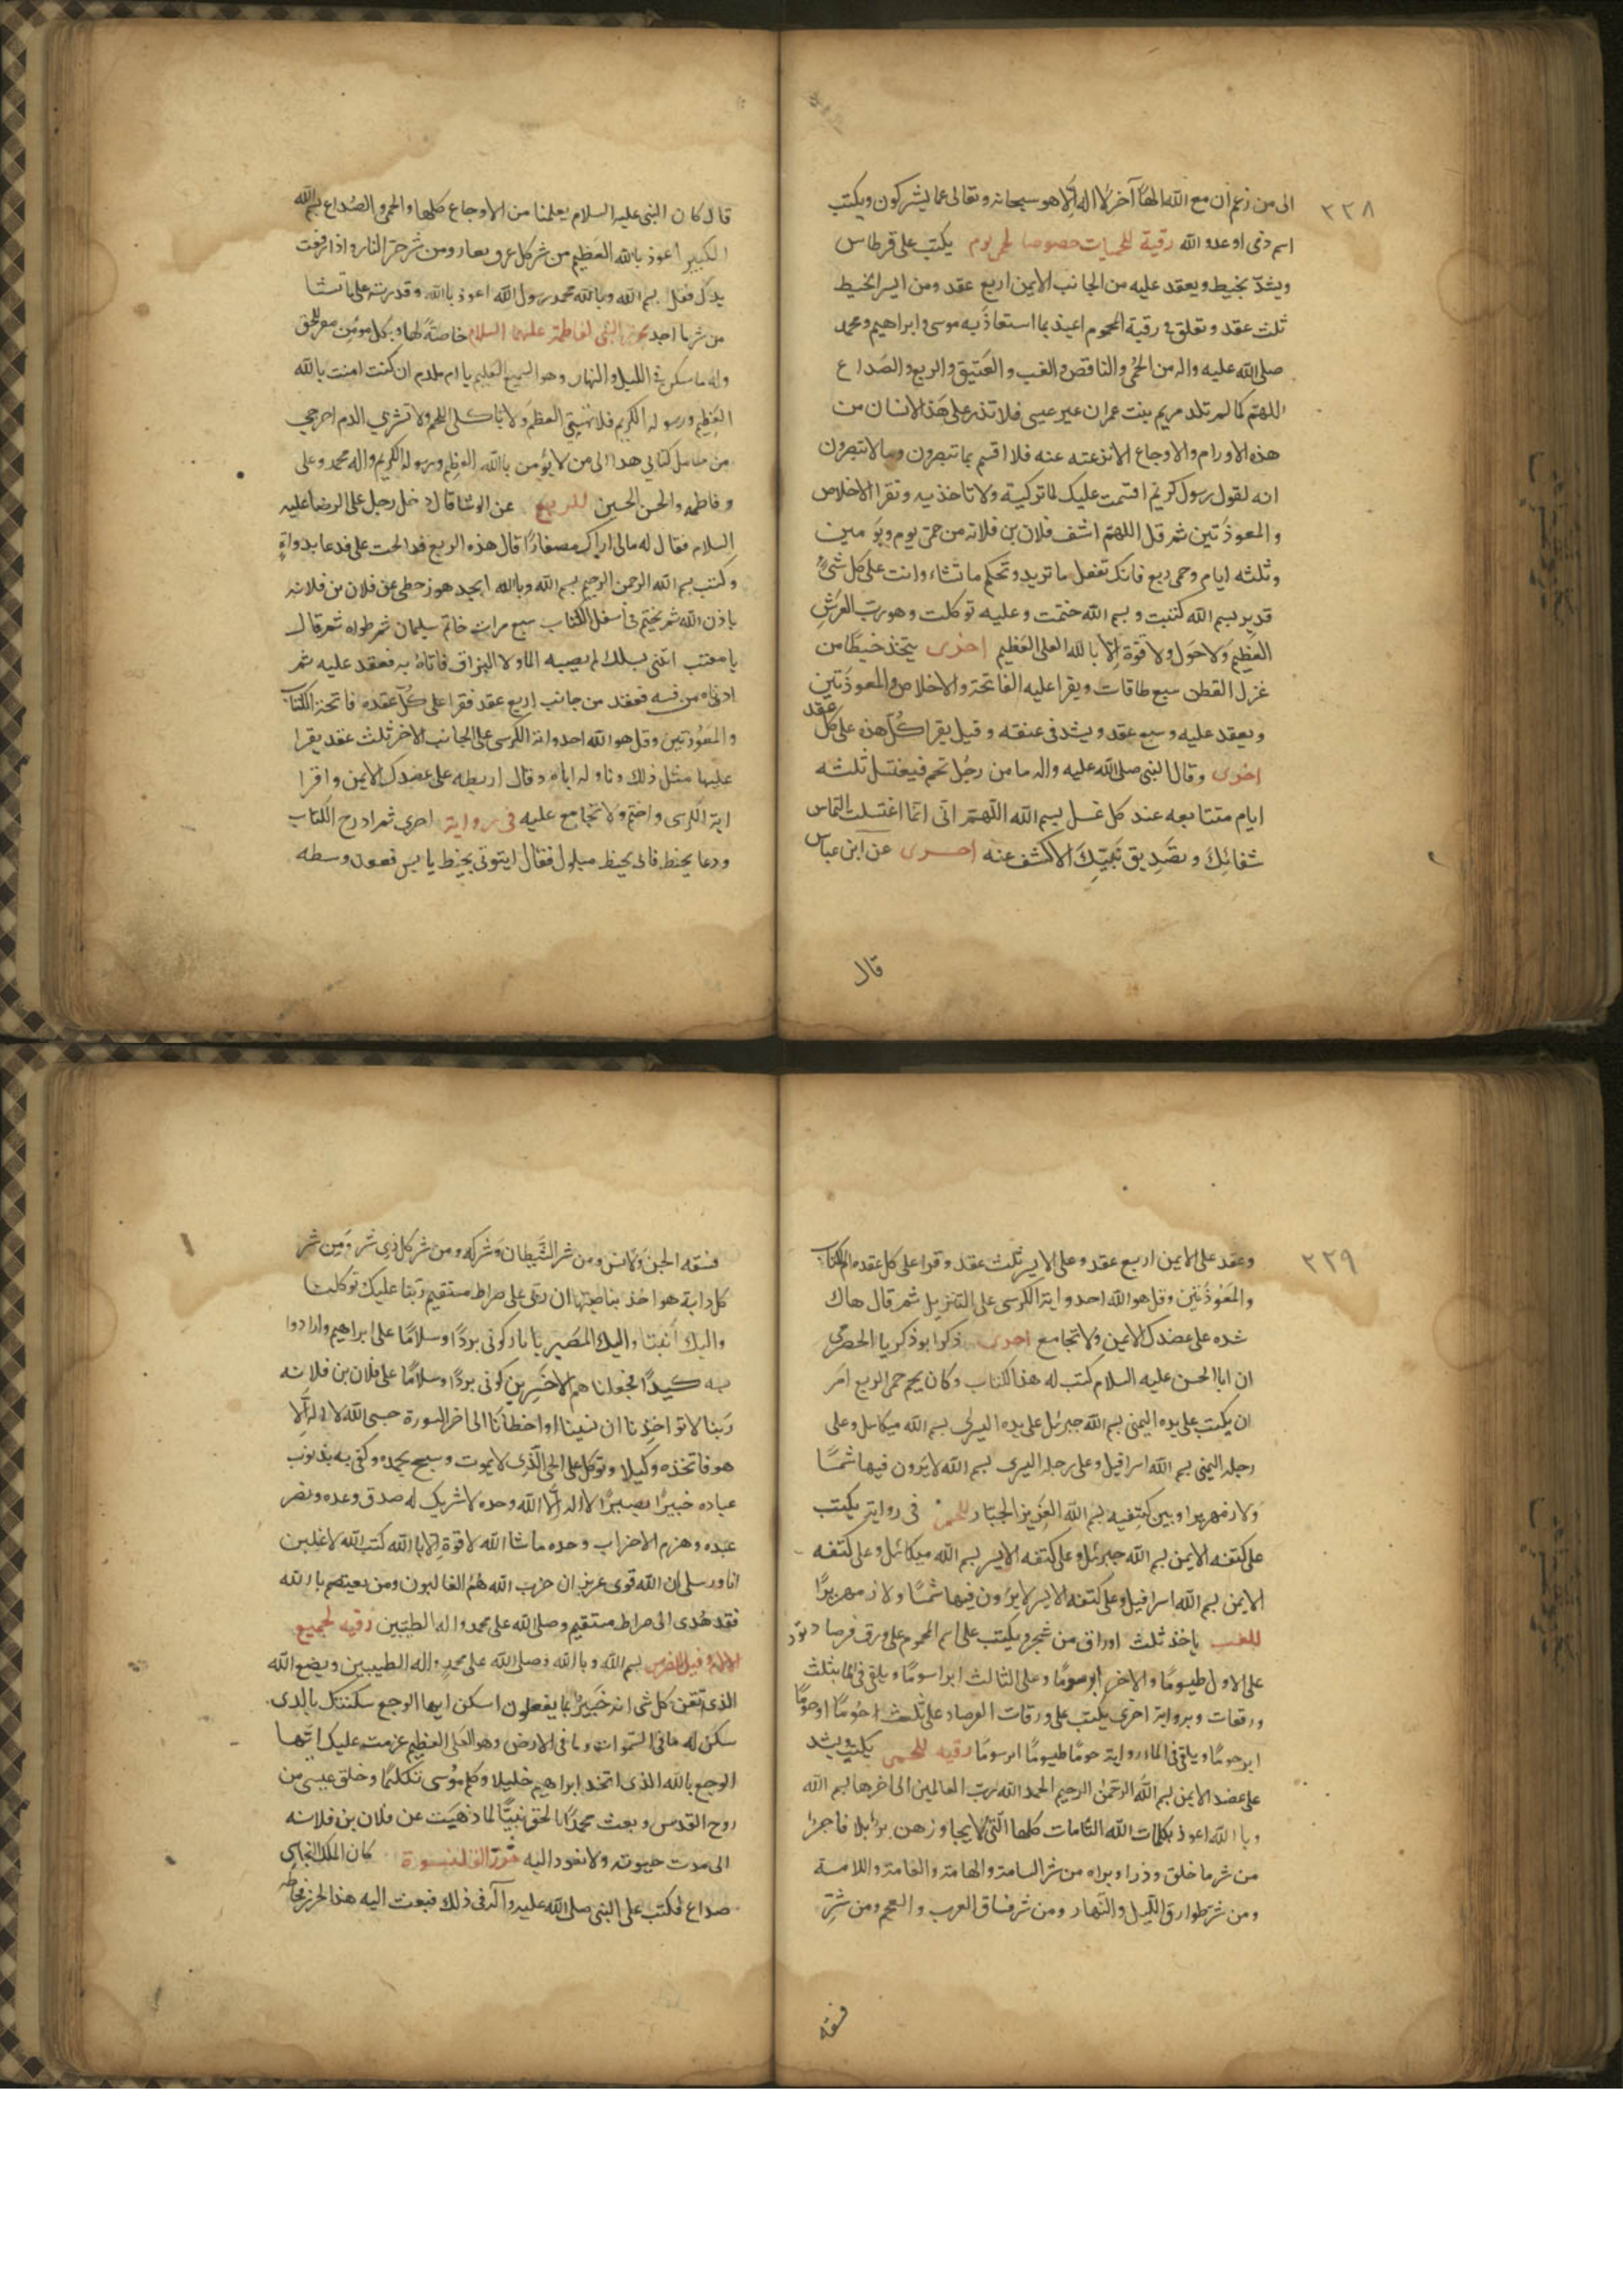 ٢٢٨
الى من زعم ان مع الله الها آخر لا اله الا هو سبحانه وتعالى عما يشركون ويكتب
اسم ذمى او عدو الله رقية للحميات خصوصا لحمى يوم يكتب على قرطاس
ويشدّ بخيط ويعقد عليه من الجانب الايمن اربع عقد ومن ايسر الخيط
ثلث عقد وتعلق فى رقبة المحموم اعيذ بما استعاذ به موسى وابراهيم ومحمد
صلى الله عليه واله من الحمى والنافض والغب والعتيق والربع والصداع
اللهم كما لم تلد مريم بنت عمران غير عيسى فلا تذر على هذا الانسان من
هذه الاورام والاوجاع الا نزعته عنه فلا اقسم بما تبصرون وما لا تبصرون
انه لقول رسول كريم اقسمت عليك لما تركية ولا تاخذيه وتقرا الاخلاص
والمعوذتين ثم قل اللهم اشف فلان بن فلانه من حمى يوم ويومين
وثلثه ايام وحمى ربع فانك تفعل ما تريد وتحكم ما تشاء وانت على كل شئ
قدير بسم الله كتبت و بسم الله ختمت وعليه توكلت وهو رب العرش
العظيم ولا حول ولا قوة الا بالله العلى العظيم اخرى يتخذ خيطا من
غزل القطن سبع طاقات ويقرا عليه الفاتحة والاخلاص والمعوذتين
ويعقد عليه سبع عقد ويشد فى عنقه وقيل يقرا كل هذه على كل عقد
اخرى وقال النبى صلى الله عليه واله ما من رجل تحم فيغتسل ثلثه
ايام متتابعه عند كل غسل بسم الله اللهم انى انما اغتسلت التماس
شفائك وتصديق نبيك الا كشف عنه اخرى عن ابن عباس
قال
قال كان النبى عليه السلام يعلمنا من الاوجاع كلها والحمى والصداع بسم الله
الكبير اعوذ بالله العظيم من شر كل عرق نعار ومن شر حر النار واذا رفعت
يدك فقل بسم الله وبالله محمد رسول الله اعوذ بالله وقدرته على ما تشا
من شر ما اجد النبى لفاطمة عليهما السلام خاصة لها وبكل مومن مقر للحق
وله ما سكن فى الليل والنهار وهو السميع العليم يا ام ملدم ان كنت امنت بالله
العظيم ورسوله الكريم فلا تهشمى العظم ولا تاكلى اللحم ولا تشربى الدم اخرجى
من حامل كتابى هذا الى من لا يؤمن بالله العظيم ورسوله الكريم واله محمد وعلى
وفاطمه والحسن الحسين للربع عن الوشا قال دخل رجل على الرضا عليه
السلام فقال له مالى اراك مصفارا قال هذه الربع قد الحت على فدعا بدواة
وكتب بسم الله الرحمن الرحيم بسم الله وبالله ابجد هوز حطى عن فلان بن فلانه
باذن الله ثم يختم فى اسفل الكتاب سبع مرات خاتم سليمان ثم طواه ثم قال
يا معتب ائتنى بسلك لم يصبه الما ولا البزاق فاتاه به فعقد عليه ثم
ادناه من فيه فعقد من جانب اربع عقد فقرا على كل عقده فاتحة الكتاب
والمعوذتين وقل هو الله احد واية الكرسى على الجانب الاخر ثلث عقد يقرا
عليها مثل ذلك وناوله اياه وقال اربطه على عضدك الايمن واقرا
اية الكرسى واختم ولا تجامع عليه فى رواية اخرى ثم ادرج الكتاب
ودعا بخيط فاتى بخيط مبلول فقال ايتونى بخيط يابس فعقد وسطه
٢٢٩
وعقد على الايمن اربع عقد وعلى الايسر ثلث عقد وقرا على كل عقده ام الكتاب
والمعوذتين وقل هو الله احد واية الكرسى على التنزيل ثم قال هاك
شده على عضدك الايمن ولا تجامع اخرى ذكر ابو ذكريا الحضرمى
ان ابا الحسن عليه السلام كتب له هذا الكتاب وكان يحم حمى الربع امر
ان يكتب على يده اليمنى بسم الله جبرئل على يده اليسرى بسم الله ميكائل وعلى
رجله اليمنى بسم الله اسرافيل وعلى رجله اليسرى بسم الله لا يرون فيها شمسا
ولا زمهريرا وبين كتفيه بسم الله العزيز الجبار للحمى فى رواية يكتب
على كتفه الايمن بسم الله جبرئل وعلى كتفه الايسر بسم الله ميكائل وعلى كتفه
الايمن بسم الله اسرافيل وعلى كتفه الايسر لا يرون فيها شمسا ولا زمهريرا
للغب ياخذ ثلث اوراق من شجر ويكتب على اسم المحموم على ورق فرصاد توت
على الاول طيسوما والاخر ابرسوما وعلى الثالث ابراسوما ويلقى فى الما بثلث
ورقعات وبرواية اخرى يكتب على ورقات الفرصاد على ثلث احوما ارحوما
ابرحوما ويلقى فى الما رواية حوما طيسوما ابرسوما رقيه للحمى يكتب ويشد
على عضد الايمن بسم الله الرحمن الرحيم الحمد لله رب العالمين الى اخرها بسم الله
وبا الله اعوذ بكلمات الله التامات كلها التى لا يجاوزهن بر ولا فاجر
من شر ما خلق وذرا وبراه من شر السامة والهامة والعامة واللامة
ومن شر طوارق الليل والنهار ومن شر فساق العرب والعجم ومن شر
فسقه
فسقه الجن والانس ومن شر الشيطان وشركه ومن شر كل ذى شر ومن شر
كل دابة هو اخذ بناصيتها ان ربى على صراط مستقيم ربنا عليك توكلنا
واليك انبنا واليك المصير يا نار كونى بردا وسلاما على ابراهيم وارادوا
به كيدا فجعلناهم الاخسرين كونى بردا وسلاما على فلان بن فلانه
ربنا لا تواخذنا ان نسينا او اخطانا الى اخر السورة حسبى الله لا اله الا
هو فاتخذه وكيلا وتوكل على الحى الذى لا يموت وسبح بحمده وكفى به بذنوب
عباده خبيرا بصيرا لا اله الا الله وحده لا شريك له صدق وعده ونصر
عبده وهزم الاحزاب وحده ما شا الله لا قوة الا بالله كتب الله لاغلبن
انا ورسلى ان الله قوى عزيز ان حزب الله هم الغالبون ومن يعتصم بالله
فقد هدى الى صراط مستقيم وصلى الله على محمد واله الطيبين رقيه لجميع
الالام وقيل للضرس بسم الله وبالله وصلى الله على محمد واله الطيبين وبضع الله
الذى اتقن كل شى انه خبير بما يفعلون اسكن ايها الوجع سكنتك بالذى
سكن له ما فى السموات وما فى الارض وهو العلى العظيم عزمت عليك ايتها
الوجع بالله الذى اتخذ ابراهيم خليلا وكلم موسى تكليما وخلق عيسى من
روح القدس وبعث محمدا بالحق نبيا لما ذهبت عن فلان بن فلانه
الى مدت حيوته ولا تعود اليه حرز القلنسوة كان الملك النجاشى
صداع فكتب على النبى صلى الله عليه وآله فى ذلك فبعث اليه هذا الحرز فخاطه